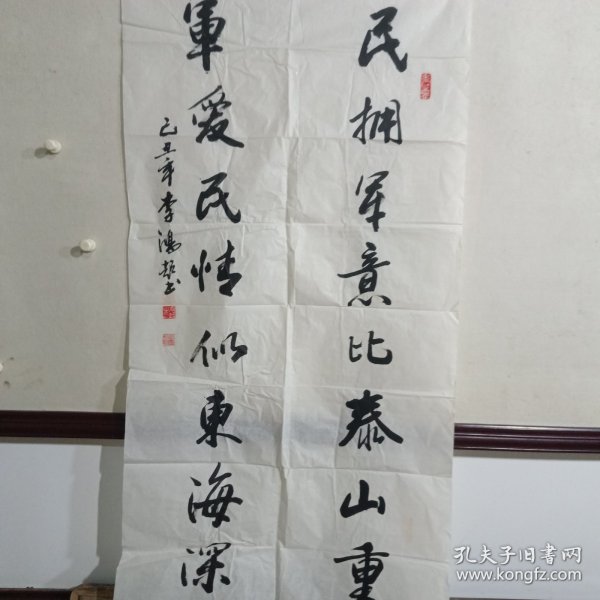 民拥军意比泰山重
軍愛民情似東海深
己丑年李鴻超书
孔夫子旧书网
www.kongfz.com